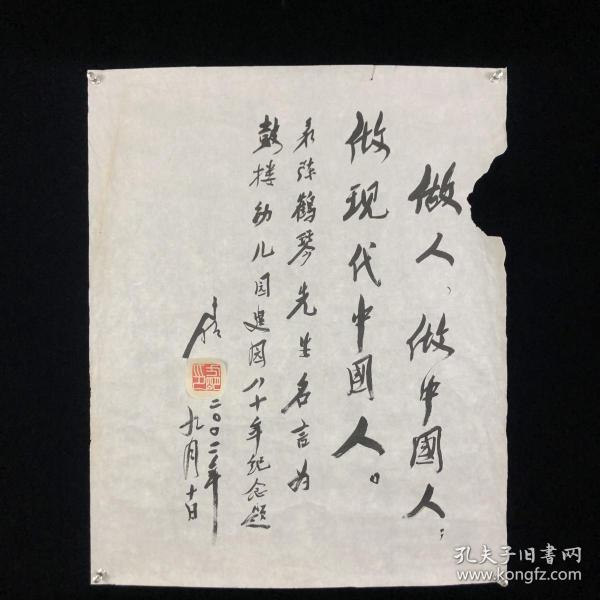 做人，做中國人；
做现代中國人。
录陈鹤琴先生名言为
鼓楼幼儿园建园八十年纪念题
二00二年
九月十日
孔夫子旧书网
www.kongfz.com